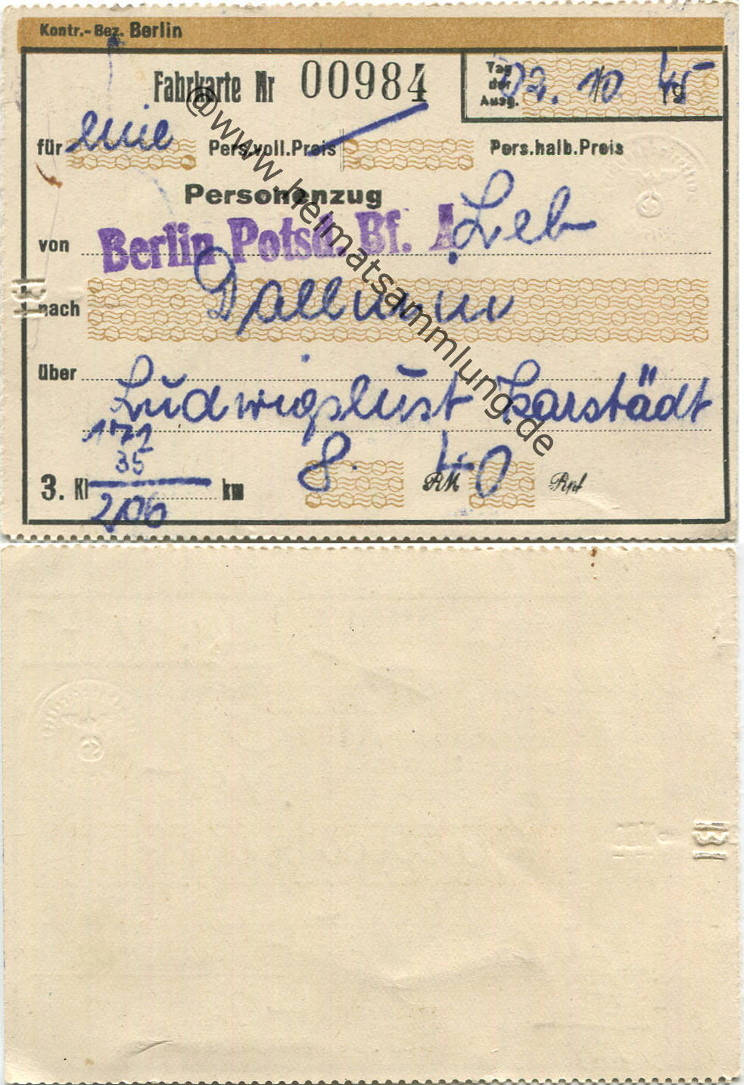 Kontr.-Bez. Berlin
Fahrkarte Nr 00984
Tag der Ausg. 02. 10 1945
für eine Pers.voll.Preis Pers.halb.Preis
Personenzug
von Berlin Potsd. Bf. A Leb
nach Dallmin
über
Ludwigslust Karstädt
171
35
3. Kl km 8. RM 40 Rpf
206
@www.heimatsammlung.de